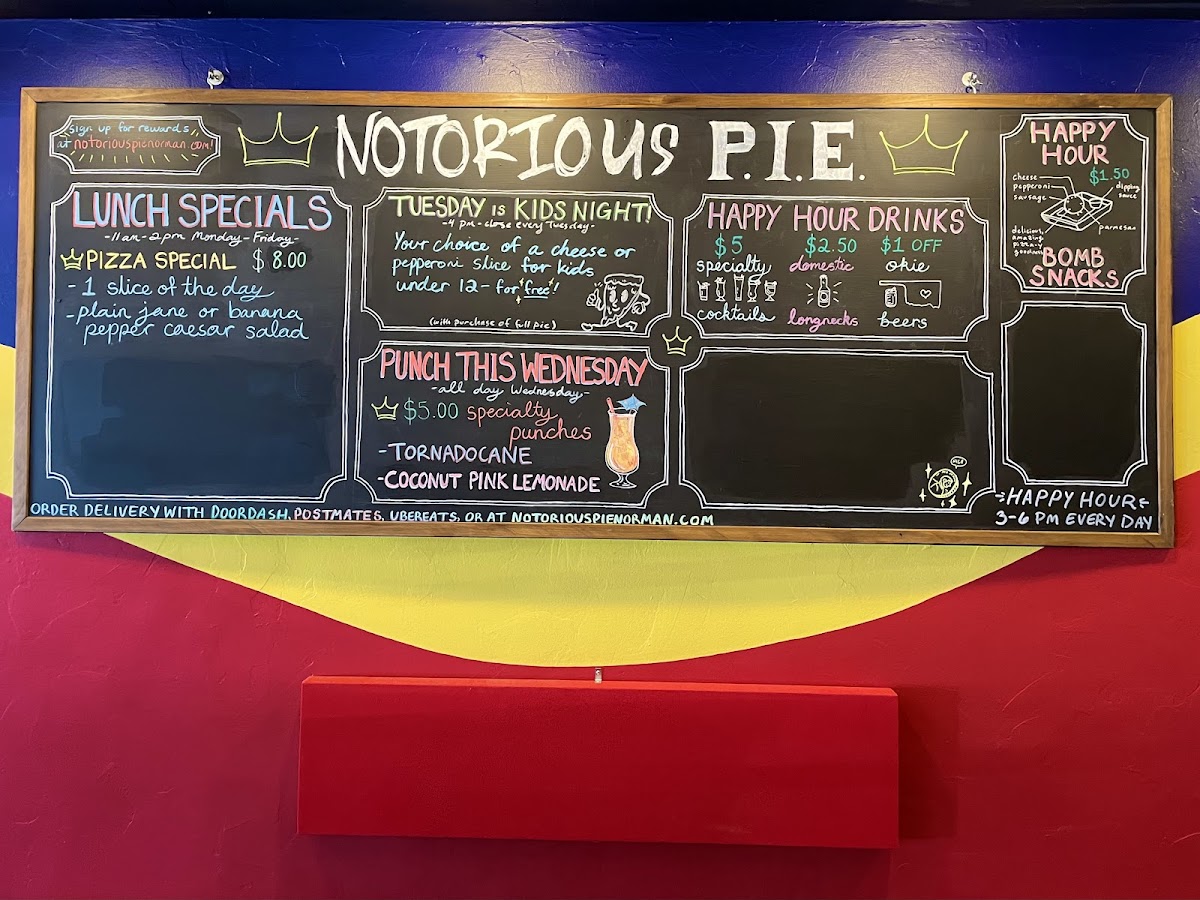 sign up for rewards
at notoriouspienorman.com!
NOTORIOUS P.I.E.
LUNCH SPECIALS
-11am-2pm Monday-Friday-
PIZZA SPECIAL $8.00
- 1 slice of the day
- plain jane or banana
pepper caesar salad
TUESDAY is KIDS NIGHT!
-4 pm-close every Tuesday-
Your choice of a cheese or
pepperoni slice for kids
under 12-for 'free'!
(with purchase of full pie)
PUNCH THIS WEDNESDAY
-all day Wednesday-
$5.00 specialty
punches
-TORNADOCANE
-COCONUT PINK LEMONADE
HAPPY HOUR DRINKS
$5 $2.50 $1 OFF
specialty domestic okie
cocktails longnecks beers
HAPPY
HOUR
$1.50
cheese
pepperoni
sausage
dipping
sauce
parmesan
delicious,
amazing
pizza-y
goodness
BOMB
SNACKS
HAPPY HOUR
3-6 PM EVERY DAY
ORDER DELIVERY WITH DOORDASH, POSTMATES, UBEREATS, OR AT NOTORIOUSPIENORMAN.COM